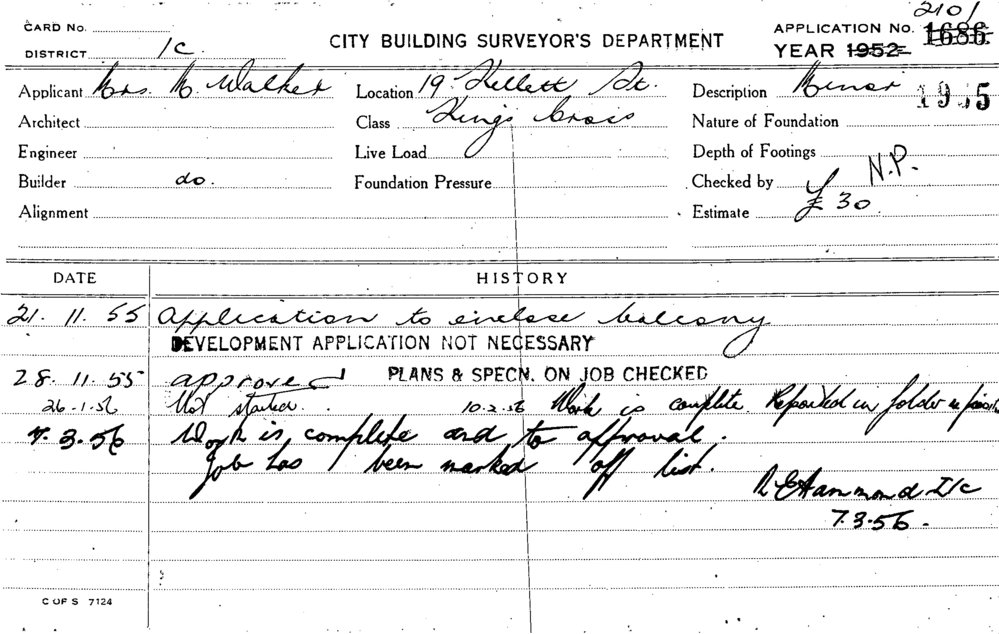 2101
CARD No.
APPLICATION No. 1686
DISTRICT 1c.
CITY BUILDING SURVEYOR'S DEPARTMENT
YEAR 1952
1955
Applicant Mrs. M. Walker Location 19 Kellett St. Description Minor
Architect Class Kings Cross Nature of Foundation
Engineer Live Load Depth of Footings
Builder do. Foundation Pressure Checked by N.P.
Alignment Estimate £ 30
DATE HISTORY
21. 11. 55 Application to enclose balcony
DEVELOPMENT APPLICATION NOT NECESSARY
28. 11. 55 approved PLANS & SPECN. ON JOB CHECKED
26.1.56 Not started. 10.2.56 Work is complete. Reported in folder
7.3.56 Work is complete and to approval.
Job has been marked off list.
Hammond I/c
7.3.56.
C OF S 7124